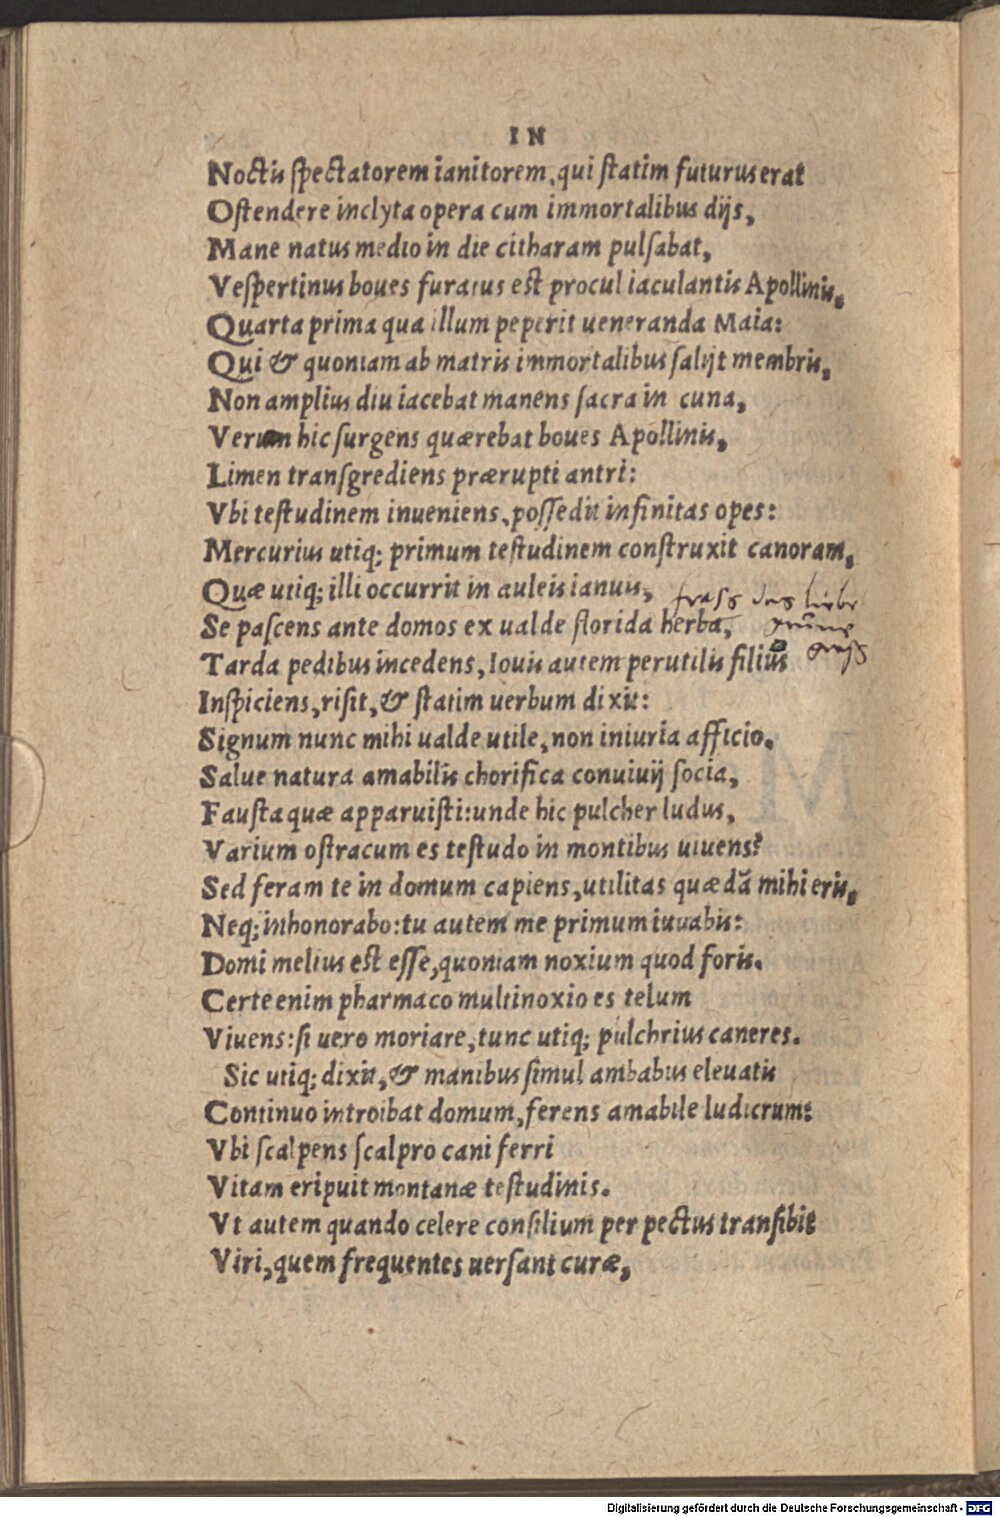 IN
Noctis spectatorem ianitorem, qui statim futurus erat
Ostendere inclyta opera cum immortalibus dijs,
Mane natus medio in die citharam pulsabat,
Vespertinus boues furatus est procul iaculantis Apollinis,
Quarta prima qua illum peperit ueneranda Maia:
Qui & quoniam ab matris immortalibus salijt membris,
Non amplius diu iacebat manens sacra in cuna,
Verum hic surgens quærebat boues Apollinis,
Limen transgrediens prærupti antri:
Vbi testudinem inueniens, possedit infinitas opes:
Mercurius utiq; primum testudinem construxit canoram,
Quæ utiq; illi occurrit in auleis ianuis,
frass das liebe
Se pascens ante domos ex ualde florida herba,
grüne
Tarda pedibus incedens, Iouis autem perutilis filius
grass
Inspiciens, risit, & statim uerbum dixit:
Signum nunc mihi ualde utile, non iniuria afficio.
Salue natura amabilis chorifica conuiuij socia,
Fausta quæ apparuisti: unde hic pulcher ludus,
Varium ostracum es testudo in montibus uiuens?
Sed feram te in domum capiens, utilitas quædã mihi eris,
Neq; inhonorabo: tu autem me primum iuuabis:
Domi melius est esse, quoniam noxium quod foris.
Certe enim pharmaco multinoxio es telum
Viuens: si uero moriare, tunc utiq; pulchrius caneres.
Sic utiq; dixit, & manibus simul ambabus eleuatis
Continuo introibat domum, ferens amabile ludicrum:
Vbi scalpens scalpro cani ferri
Vitam eripuit montanæ testudinis.
Vt autem quando celere consilium per pectus transibit
Viri, quem frequentes uersant curæ,
Digitalisierung gefördert durch die Deutsche Forschungsgemeinschaft - DFG